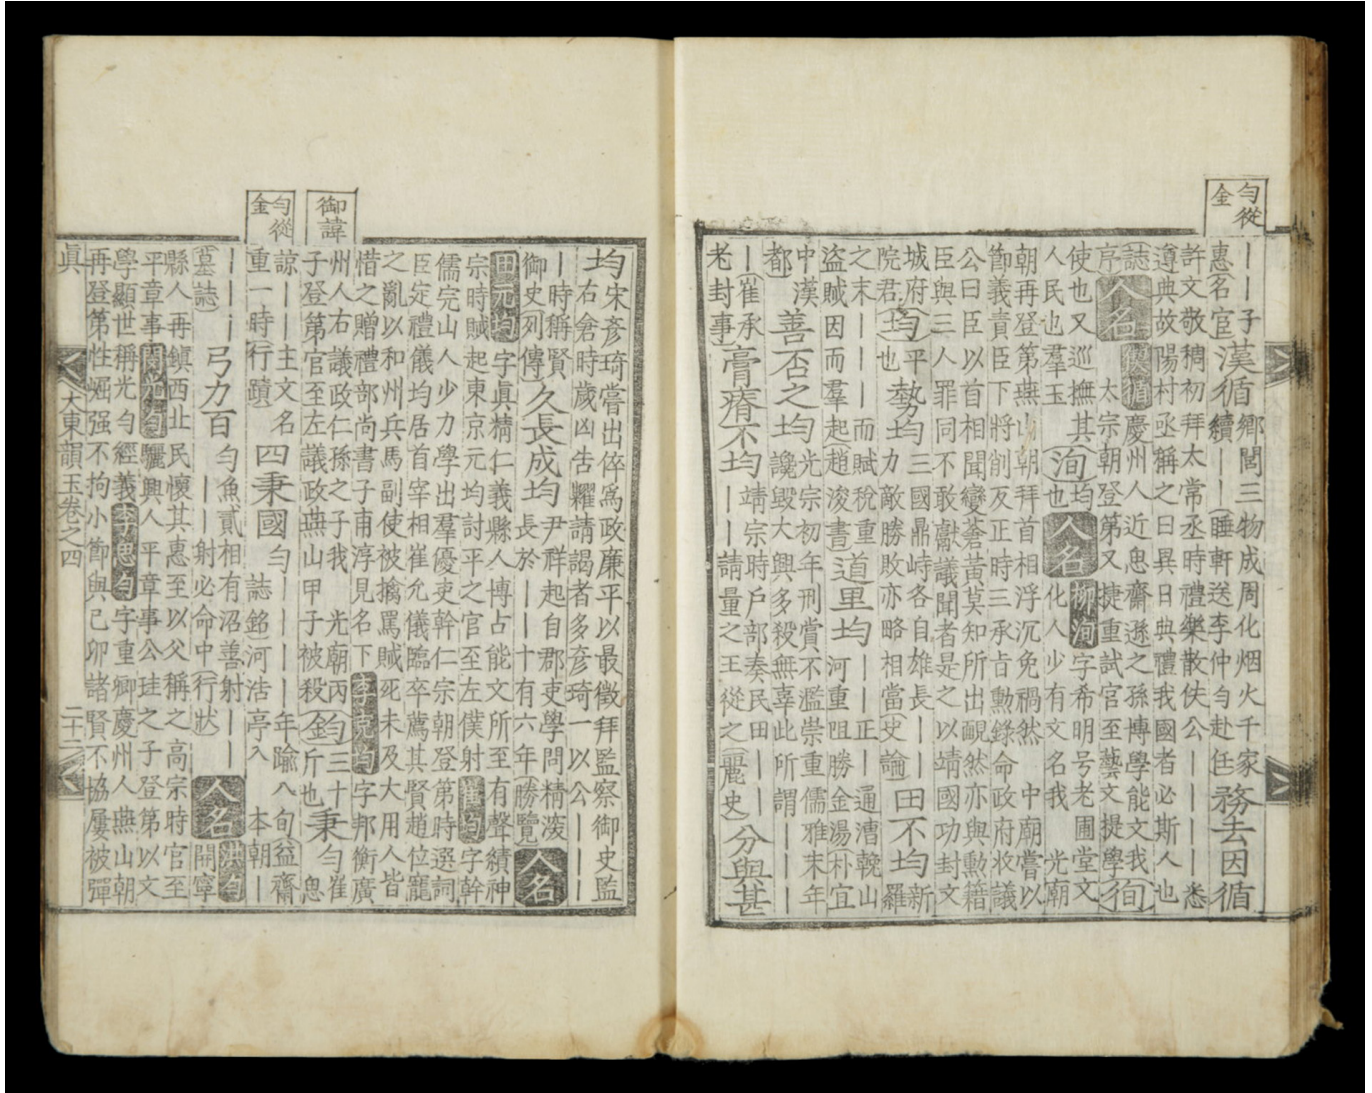 勻從
金
丨丨子 鄉閭三物成周化烟火千家 務去因循
惠 名宦 漢循 續丨丨 睡軒送李仲勻赴任
許文敬稠初拜太常丞時禮樂散佚公丨丨悉
遵典故陽村亟稱之曰異日典禮我國者必斯人也
誌 慶州人近思齋遜之孫博學能文我
序 人名 太宗朝登第又捷重試官至藝文提學 徇
使也又巡撫其 洵 均也 人名 柳洵 字希明号老圃堂文
人民也羣玉 化人少有文名我 光廟
朝再登第燕山朝拜首相浮沉免禍然 中廟嘗以
節義責臣下將削反正時三承旨勲錄命政府收議
公曰臣以首相聞變蒼黃莫知所出靦然亦與勲籍
臣與三人罪同不敢獻議聞者是之以靖國功封文
城府院君 均 平也 勢均 三國鼎峙各自雄長丨丨力敵勝敗亦略相當 史論 田不均 新羅
之末丨丨丨而賦稅重丨丨正丨丨通漕輓山
盜賊因而羣起 趙浚書 道里均 河重阻勝金湯朴宜
中漢都 善否之均 光宗初年刑賞不濫崇重儒雅末年讒毀大興多殺無辜此所謂丨丨丨丨
丨 崔承老封事 膏瘠不均 靖宗時戶部奏民田丨丨丨丨請量之王從之 麗史 分與甚
均 宋彦琦嘗出倅爲政廉平以最徵拜監察御史監
右倉時歲凶告糶請謁者多彦琦一以公丨丨
丨時稱賢 久長成均 尹祥起自郡吏學問精深
御史 列傳 長於丨丨十有六年 勝覽 人名
田元均 字眞精仁義縣人博占能文所至有聲績神
宗時賊起東京元均討平之官至左僕射 崔均 字幹
儒完山人少力學出羣優吏幹仁宗朝登第時選詞
臣定禮儀均居首宰相崔允儀臨卒薦其賢趙位寵
之亂以和州兵馬副使被擒罵賊死未及大用人皆
惜之贈禮部尚書子甫淳見名下 李克均 字邦衡廣
州人右議政仁孫之子我 光廟丙
子登第官至左議政燕山甲子被殺 鈞 三十斤也 秉勻 崔思
御諱
諒丨丨主文名 四秉國勻 丨丨丨丨年踰八旬 益齋
重一時 行蹟 誌銘 河浩亭入 本朝丨
勻從
金
丨丨丨 弓力百勻 魚貳相有沼善射丨丨
墓誌 丨丨射必命中 行狀 人名 洪勻 開寧
縣人再鎭西北民懷其惠至以父稱之高宗時官至
平章事 閔光勻 驪興人平章事公珪之子登第以文
學顯世稱光勻經義 李思勻 字重卿慶州人燕山朝
再登第性崛强不拘小節與己卯諸賢不協屢被彈
眞 大東韻玉卷之四 二十二